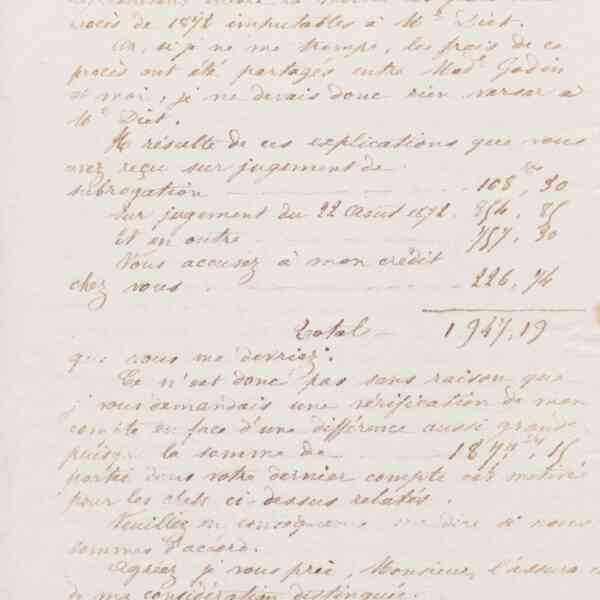 procès de 1872 imputables à Me Diet.
Or, si je ne me trompe, les frais de ce
procès ont été partagés entre Made Godin
et moi ; je ne devais donc rien verser à
Me Diet.
Il résulte de ces explications que vous
avez reçu sur jugement de
subrogation 108, 30
Sur jugement du 22 Août 1872, 854, 85
Et en outre 757, 30
Vous accusez à mon crédit
chez vous 226, 74
Total 1947,19
que vous me devriez.
Ce n'est donc pas sans raison que
je vous demandais une vérification de mon
compte en face d'une différence aussi grande
puisque la somme de 15
portée dans votre dernier compte est motivé
pour les chefs ci-dessus relatés.
Veuillez en conséquence me dire si nous
sommes d'accord.
Agréez je vous prie, Monsieur, l'assurance
de ma considération distinguée.